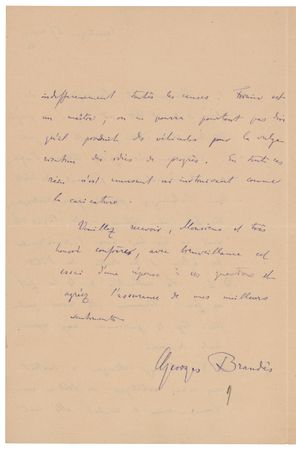 indifféremment toutes les causes. Forain est
un maître; on ne pourra pourtant pas dire
qu'il produit des véhicules pour la vulga-
risation des idées de progrès. En tout cas
rien n'est amusant ni instructif comme
la caricature.
Veuillez recevoir, Monsieur et très
honoré confrère, avec bienveillance cet
essai d'une réponse à ces questions et
agréez l'assurance de mes meilleurs
sentiments
Georges Brandès